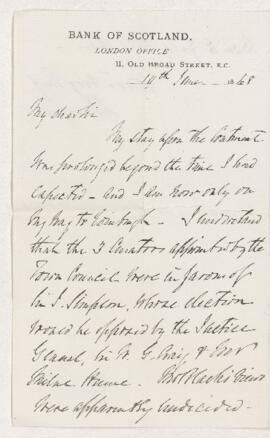 BANK OF SCOTLAND.
LONDON OFFICE
11, OLD BROAD STREET, E.C.
19th June 1868
My dear Sir
My stay upon the Continent
was prolonged beyond the time I had
expected - and I am now only on
my way to Edinburgh - I understand
that the 3 Curators appointed by the
Town Council were in favour of
Sir J. Simpson, whose election
would be opposed by the Justice
General, Sir W. G. Craig, &
Milne Home.
were apparently undecided -